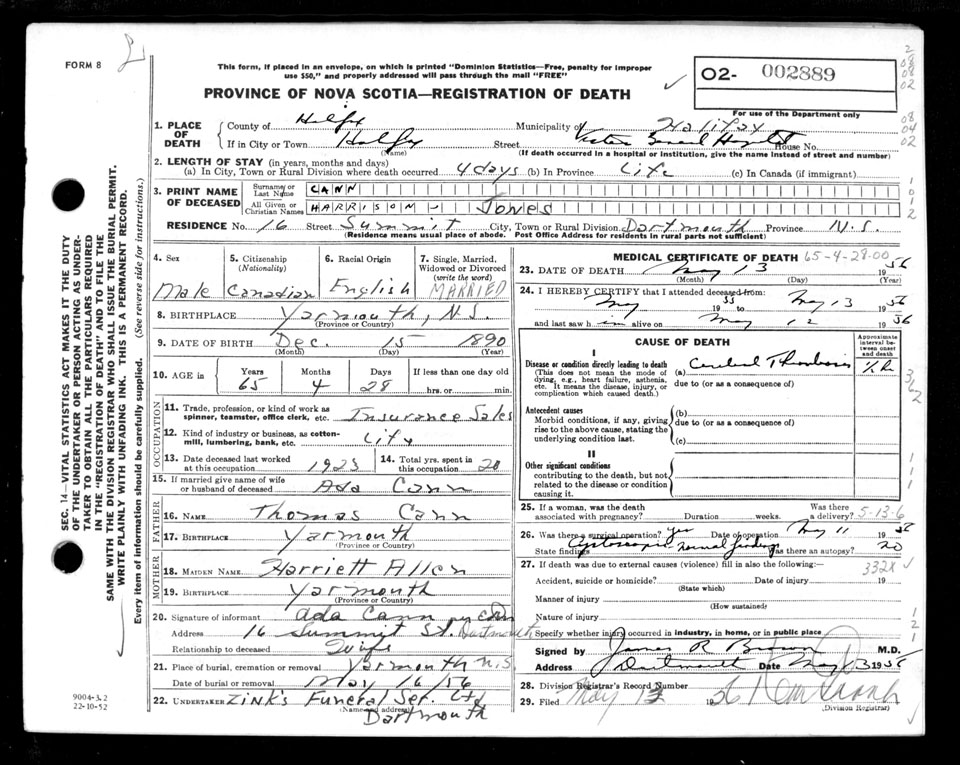 FORM 8
This form, if placed in an envelope, on which is printed "Dominion Statistics—Free, penalty for improper
use $50," and properly addressed will pass through the mail "FREE"
PROVINCE OF NOVA SCOTIA—REGISTRATION OF DEATH
02- 002889
For use of the Department only
1. PLACE OF DEATH
County of Hlfx Municipality of Halifax
If in City or Town Halfx (Name) Street Victoria General Hospital House No.
(If death occurred in a hospital or institution, give the name instead of street and number)
2. LENGTH OF STAY (in years, months and days)
(a) In City, Town or Rural Division where death occurred 4 days (b) In Province Life (c) In Canada (if immigrant)
3. PRINT NAME OF DECEASED
Surname or Last Name CANN
All Given or Christian Names HARRISON - Jones
RESIDENCE No. 16 Street Summit City, Town or Rural Division Dartmouth Province N.S.
(Residence means usual place of abode. Post Office Address for residents in rural parts not sufficient)
4. Sex Male
5. Citizenship (Nationality) Canadian
6. Racial Origin English
7. Single, Married, Widowed or Divorced (write the word) MARRIED
8. BIRTHPLACE Yarmouth, N.S.
(Province or Country)
9. DATE OF BIRTH Dec. 15 1890
(Month) (Day) (Year)
10. AGE in Years 65 Months 4 Days 28 If less than one day
hrs. or min.
OCCUPATION
11. Trade, profession, or kind of work as spinner, teamster, office clerk, etc. Insurance Sales
12. Kind of industry or business, as cotton-mill, lumbering, bank, etc. Life
13. Date deceased last worked at this occupation 1923
14. Total yrs. spent in this occupation 20
15. If married give name of wife or husband of deceased Ada Cann
FATHER
16. NAME Thomas Cann
17. BIRTHPLACE Yarmouth
(Province or Country)
MOTHER
18. MAIDEN NAME Harriett Allen
19. BIRTHPLACE Yarmouth
(Province or Country)
20. Signature of informant Ada Cann
Address 16 Summit St. Dartmouth
Relationship to deceased Wife
21. Place of burial, cremation or removal Yarmouth N.S.
Date of burial or removal May 16/56
22. UNDERTAKER Zink's Funeral Ser. Ltd
(Name and address) Dartmouth
MEDICAL CERTIFICATE OF DEATH 65-4-28-00
23. DATE OF DEATH May 13 1956
(Month) (Day) (Year)
24. I HEREBY CERTIFY that I attended deceased from:
May 1955 to May 13 1956
and last saw him alive on May 12 1956
CAUSE OF DEATH
Approximate interval between onset and death
I
Disease or condition directly leading to death (a) Cerebral Thrombosis
(This does not mean the mode of dying, e.g., heart failure, asthenia, etc. It means the disease, injury, or complication which caused death.)
due to (or as a consequence of)
Antecedent causes
Morbid conditions, if any, giving rise to the above cause, stating the underlying condition last.
(b)
due to (or as a consequence of)
(c)
II
Other significant conditions
contributing to the death, but not related to the disease or condition causing it.
25. If a woman, was the death associated with pregnancy? Duration weeks. Was there a delivery?
5-13-6
26. Was there a surgical operation? yes Date of operation May 11 1956
State findings Cystoscopic normal findings Was there an autopsy? no
27. If death was due to external causes (violence) fill in also the following:—
332X
Accident, suicide or homicide? Date of injury 19
(State which)
Manner of injury
(How sustained)
Nature of injury
Specify whether injury occurred in industry, in home, or in public place
Signed by James R Brown M.D.
Address Dartmouth Date May 13 1956
28. Division Registrar's Record Number
29. Filed May 1956
(Division Registrar)
SEC. 14—VITAL STATISTICS ACT MAKES IT THE DUTY
OF THE UNDERTAKER OR PERSON ACTING AS UNDER-
TAKER TO OBTAIN ALL THE PARTICULARS REQUIRED
IN THE "REGISTRATION OF DEATH" AND TO FILE THE
SAME WITH THE DIVISION REGISTRAR WHO SHALL ISSUE THE BURIAL PERMIT.
WRITE PLAINLY WITH UNFADING INK. THIS IS A PERMANENT RECORD.
Every item of information should be carefully supplied. (See reverse side for instructions.)
9004-3.2
22-10-52